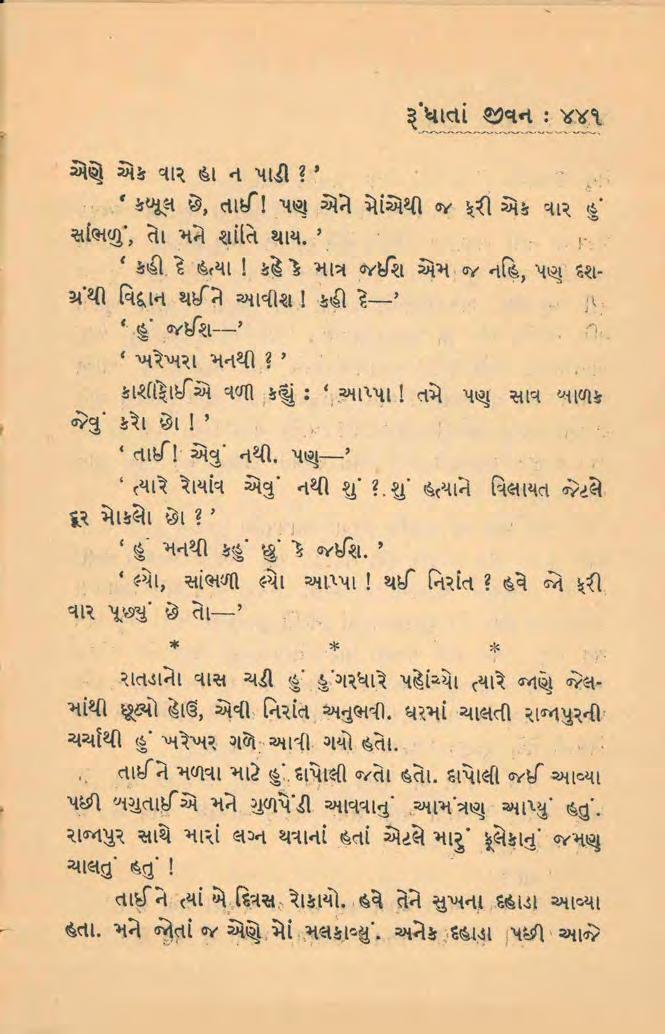 રૂંધાતાં જીવન : ૪૪૧
એણે એક વાર હા ન પાડી ? ’
‘ કબૂલ છે, તાઈ! પણ એને મોંએથી જ ફરી એક વાર હું
સાંભળું, તો મને શાંતિ થાય. ’
‘ કહી દે હત્યા ! કહે કે માત્ર જઈશ એમ જ નહિ, પણ દશ-
ગ્રંથી વિદ્વાન થઈને આવીશ ! કહી દે—’
‘ હું જઈશ—’
‘ ખરેખરા મનથી ? ’
કાશીફોઈએ વળી કહ્યું : ‘ આપ્પા ! તમે પણ સાવ બાળક
જેવું કરો છો ! ’
‘ તાઈ! એવું નથી. પણ—’
‘ ત્યારે રોયાંવ એવું નથી શું ? શું હત્યાને વિલાયત જેટલે
દૂર મોકલો છો ? ’
‘ હું મનથી કહું છું કે જઈશ. ’
‘ લ્યો, સાંભળી લ્યો આપ્પા ! થઈ નિરાંત ? હવે જો ફરી
વાર પૂછ્યું છે તો—’
* * *
રાતડાનો વાસ ચડી હું ડુંગરધારે પહોંચ્યો ત્યારે જાણે જેલ-
માંથી છૂટ્યો હોઉં, એવી નિરાંત અનુભવી. ઘરમાં ચાલતી રાજાપુરની
ચર્ચાથી હું ખરેખર ગળે આવી ગયો હતો.
તાઈને મળવા માટે હું દાપોલી જતો હતો. દાપોલી જઈ આવ્યા
પછી બગુતાઈએ મને ગુળપેંડી આવવાનું આમંત્રણ આપ્યું હતું.
રાજાપુર સાથે મારાં લગ્ન થવાનાં હતાં એટલે મારું ફૂલેકાનું જમણ
ચાલતું હતું !
તાઈને ત્યાં બે દિવસ રોકાયો. હવે તેને સુખના દહાડા આવ્યા
હતા. મને જોતાં જ એણે મોં મલકાવ્યું. અનેક દહાડા પછી આજે